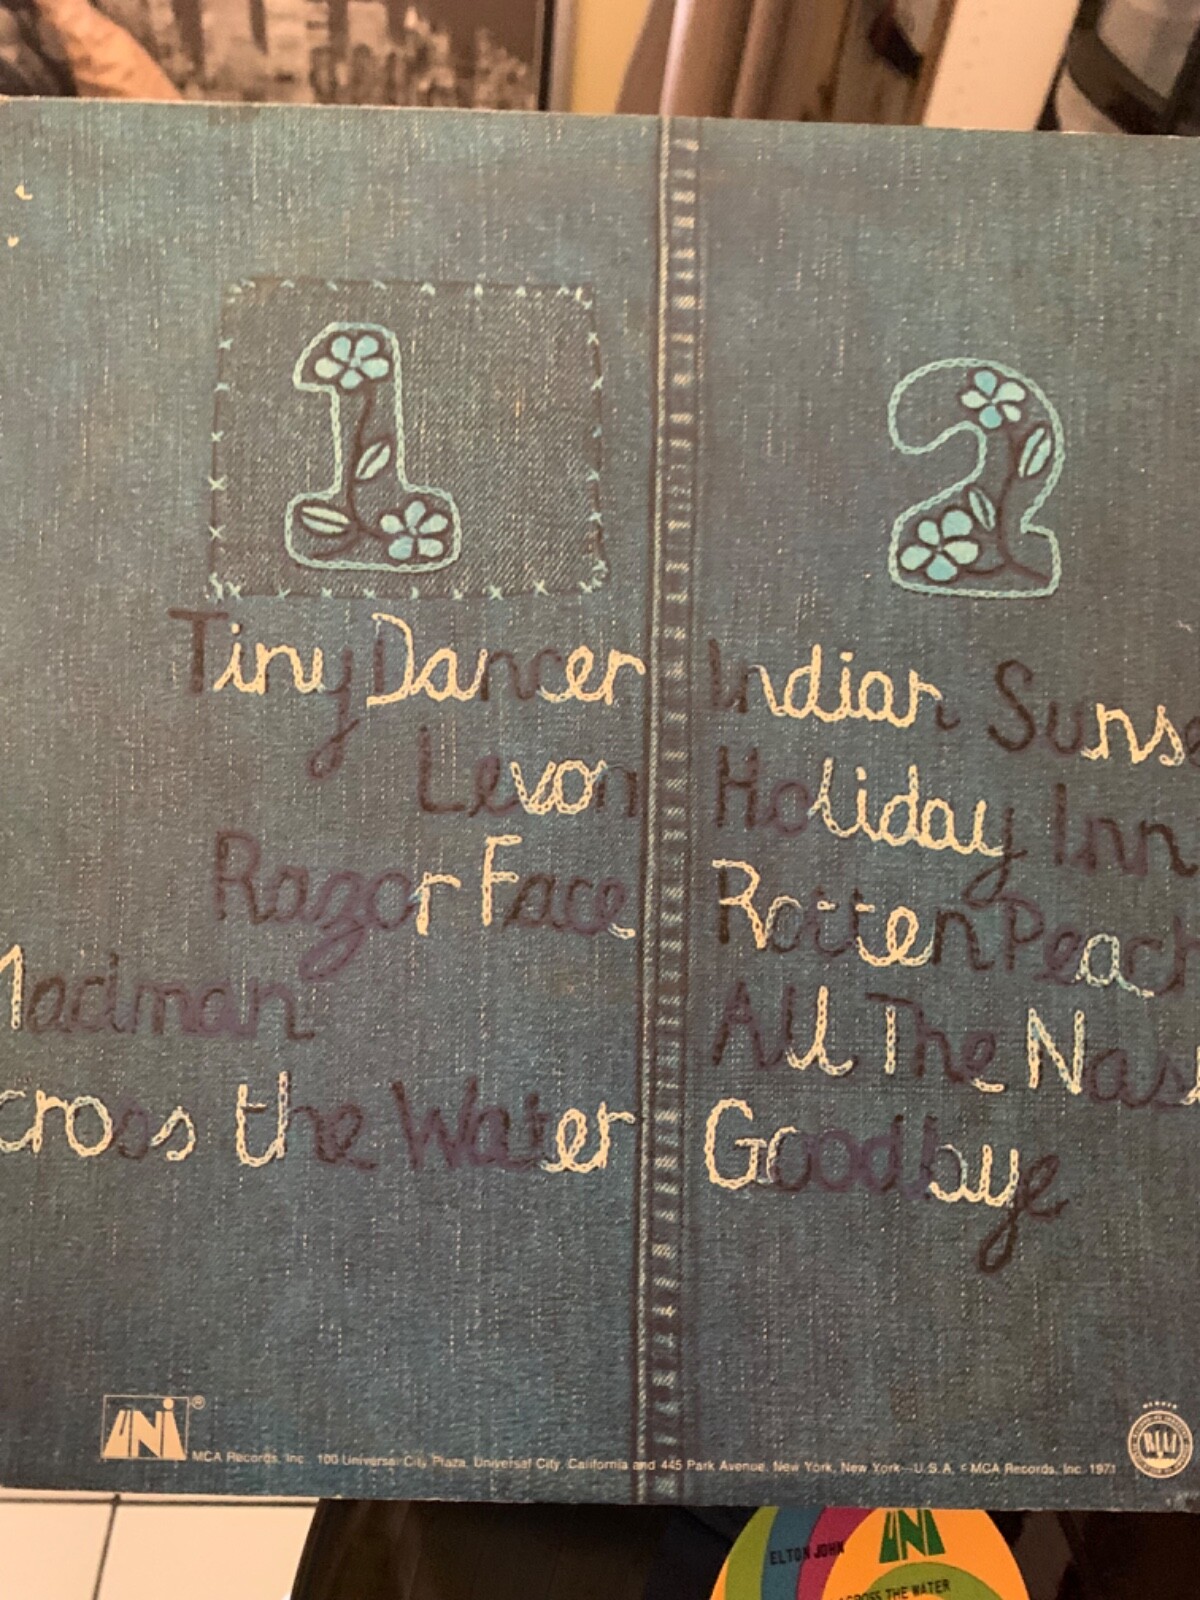 1
Tiny Dancer
Levon
Razor Face
Madman
cross the Water
2
Indian Suns
Holiday Inn
Rotten Peach
All The Nas
Goodbye
UNI®
MCA Records, Inc. 100 Universal City Plaza, Universal City, California and 445 Park Avenue, New York, New York—U.S.A. © MCA Records, Inc. 1971
ELTON JOHN
UNI
ACROSS THE WATER